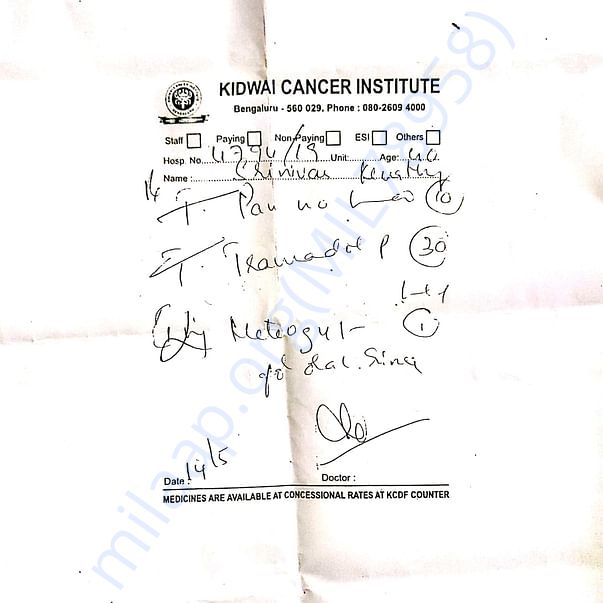 KIDWAI CANCER INSTITUTE
Bengaluru - 560 029, Phone : 080-2609 4000
Staff Paying Non-Paying ESI Others
Hosp. No. 4794/19 Unit: Age: 40
Name : Srinivas
14
T. Pan 40 10
T. Tramadol P 30
Meterogyl 1
Date : 14/5 Doctor :
MEDICINES ARE AVAILABLE AT CONCESSIONAL RATES AT KCDF COUNTER
milaap.org(MIL78958)